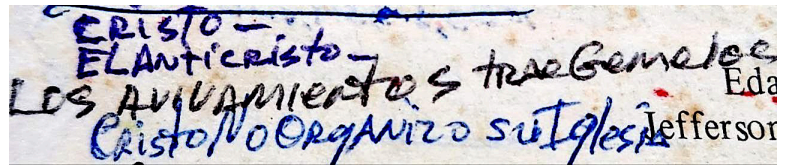 CRISTO –
EL ANTICRISTO –
LOS AVIVAMIENTOS TRAE GEMELOS
Eda
CRISTO NO ORGANIZO SU IGLESIA
Jefferson